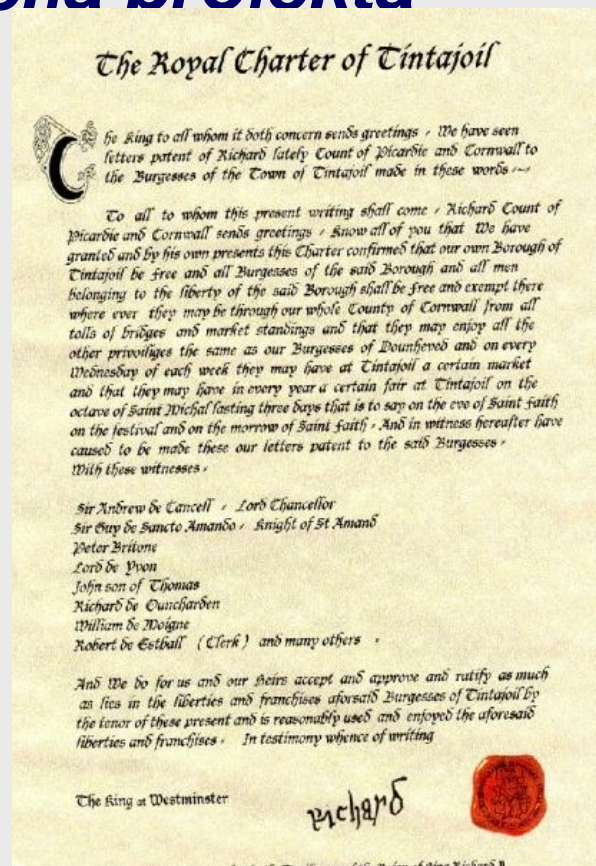 The Royal Charter of Tintajoil
The King to all whom it doth concern sends greetings , We have seen
letters patent of Richard lately Count of Picardie and Cornwall to
the Burgesses of the Town of Tintajoil made in these words
To all to whom this present writing shall come , Richard Count of
Picardie and Cornwall sends greetings , know all of you that We have
granted and by his own presents this Charter confirmed that our own Borough of
Tintajoil be free and all Burgesses of the said Borough and all men
belonging to the liberty of the said Borough shall be free and exempt there
where ever they may be through our whole County of Cornwall from all
tolls of bridges and market standings and that they may enjoy all the
other privoiliges the same as our Burgesses of Dounheved and on every
Wednesday of each week they may have at Tintajoil a certain market
and that they may have in every year a certain fair at Tintajoil on the
octave of Saint Michal lasting three days that is to say on the eve of Saint Faith
on the festival and on the morrow of Saint Faith , And in witness hereafter have
caused to be made these our letters patent to the said Burgesses ,
With these witnesses ,
Sir Andrew de Cancell , Lord Chancellor
Sir Guy de Sancto Amando , Knight of St Amand
Peter Britone
Lord de Yvon
John son of Thomas
Richard de Ouncharden
William de Moigne
Robert de Estball (Clerk) and many others ,
And We do for us and our Heirs accept and approve and ratify as much
as lies in the liberties and franchises aforsaid Burgesses of Tintajoil by
the tenor of these present and is reasonably used and enjoyed the aforesaid
liberties and franchises , In testimony whence of writing
The King at Westminster
Richard